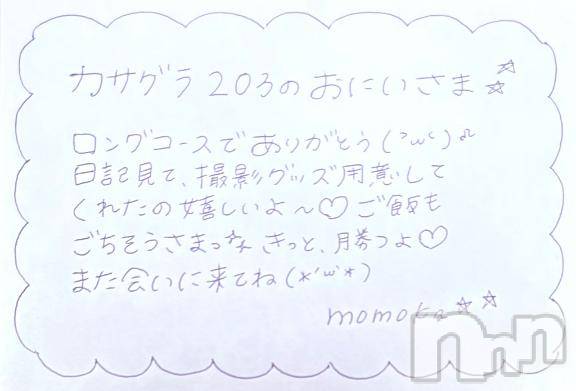 カサグラ203のおにいさま☆☆
ロングコースでありがとう(˘ω˘)♫
日記見て、撮影グッズ用意して
くれたの嬉しいよ〜♡ ご飯も
ごちそうさまっ☆ きっと、勝つよ♡
また会いに来てね(*'ω'*)
momoka☆☆
nnn